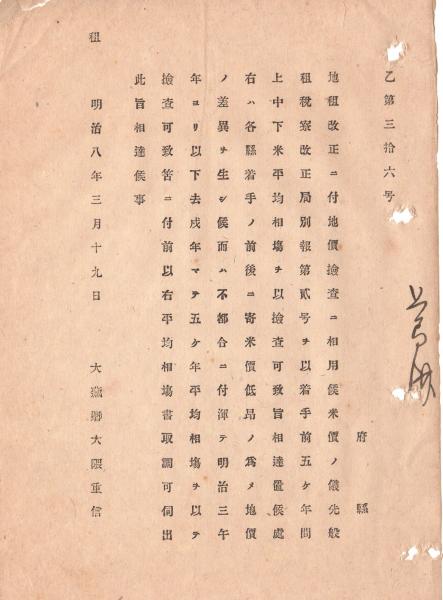 乙第三拾六号
府縣
地租改正ニ付地價撿査ニ相用候米價ノ儀先般
租税寮改正局別報第貳号ヲ以着手前五ケ年間
上中下米平均相塲ヲ以撿査可致旨相達置候處
右ハ各縣着手ノ前後ニ寄米價低昂ノ爲メ地價
ノ差異ヲ生シ候而ハ不都合ニ付渾テ明治三午
年ヨリ以下去戌年マテ五ケ年平均相塲ヲ以テ
撿査可致筈ニ付前以右平均相塲書取調可伺出
此旨相達候事
明治八年三月十九日 大藏卿大隈重信
租